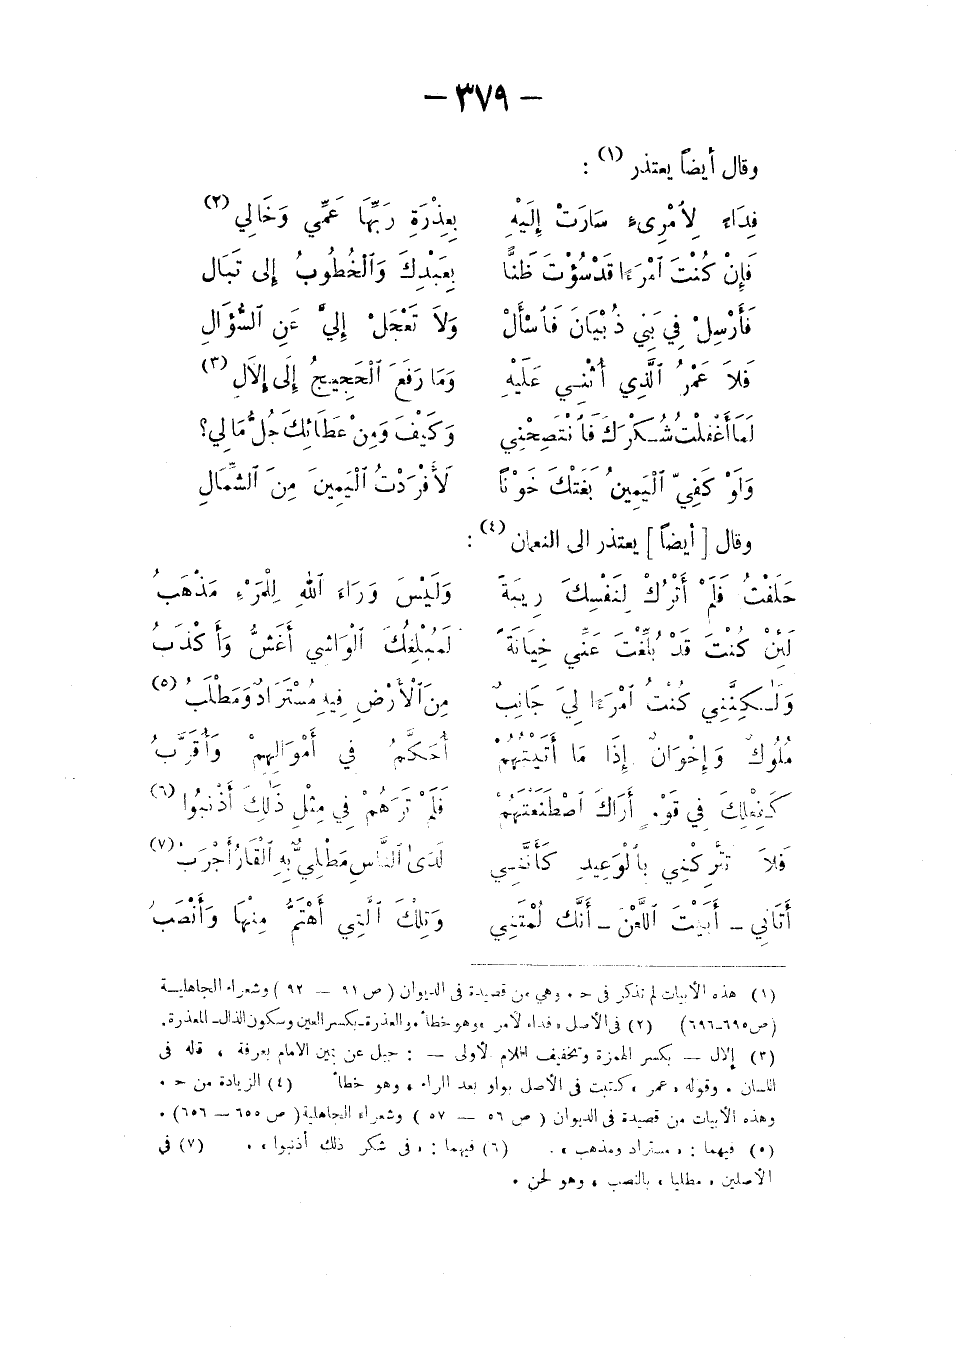 — ٣٧٩ —
وقال أيضاً يعتذر (١) :
فِدَاء لِأمْرِىء سَارَتْ إِلَيْهِ بِعِذْرَةِ رَبِّهَا عَمِّي وَخَالِي (٢)
فَإِنْ كُنْتَ ٱمْرَءًا قَدْ سُؤْتَ ظَنًّا بِعَبْدِكَ وَٱلْخُطُوبُ إِلى تَبَالِ
فَأَرْسِلْ فِي بَنِي ذُبْيَانَ فَٱسْأَلْ وَلاَ تَعْجَلْ إِلَيَّ عَنِ ٱلسُّؤَالِ
فَلاَ عَمْرُ ٱلَّذِي أُثْنِي عَلَيْهِ وَمَا رَفَعَ ٱلْحَجِيجُ إِلَى إِلاَلِ (٣)
لَمَا أَغْفَلْتُ شُكْرَكَ فَٱنْتَصِحْنِي وَكَيْفَ وَمِنْ عَطَائِكَ جُلُّ مَالِي؟
وَلَوْ كَفِيّ ٱلْيَمِينُ بَغَتْكَ خَوْنًا لَأَفْرَدْتُ ٱلْيَمِينَ مِنَ ٱلشِّمَالِ
وقال [ أيضاً ] يعتذر الى النعمان (٤) :
حَلَفْتُ فَلَمْ أَتْرُكْ لِنَفْسِكَ رِيبَةً وَلَيْسَ وَرَاءَ ٱللهِ لِلْمَرْءِ مَذْهَبُ
لَئِنْ كُنْتَ قَدْ بُلِّغْتَ عَنِّي خِيَانَةً لَمُبْلِغُكَ ٱلْوَاشِي أَغَشُّ وَأَكْذَبُ
وَلَـٰكِنَّنِي كُنْتُ ٱمْرَءًا لِيَ جَانِبٌ مِنَ ٱلْأَرْضِ فِيهِ مُسْتَرَادٌ وَمَطْلَبُ (٥)
مُلُوكٌ وَإِخْوَانٌ إِذَا مَا أَتَيْتُهُمْ أُحَكَّمُ فِي أَمْوَالِهِمْ وَأُقَرَّبُ
كَفِعْلِكَ فِي قَوْمٍ أَرَاكَ ٱصْطَنَعْتَهُمْ فَلَمْ تَرَهُمْ فِي مِثْلِ ذَلِكَ أَذْنَبُوا (٦)
فَلاَ تَتْرُكَنِّي بِٱلْوَعِيدِ كَأَنَّنِي لَدَى ٱلنَّاسِ مَطْلِيٌّ بِهِ ٱلْقَارُ أَجْرَبُ (٧)
أَتَانِي ـ أَبَيْتَ ٱللَّعْنَ ـ أَنَّكَ لُمْتَنِي وَتِلْكَ ٱلَّتِي أَهْتَمُّ مِنْهَا وَأَنْصَبُ
(١) هذه الأبيات لم تذكر فى ح . وهي من قصيدة فى الديوان ( ص ٩١ — ٩٢ ) وشعراء الجاهلية
(ص ٦٩٥-٦٩٦) (٢) فى الأصل « فداء لامر » وهو خطأ . والعذرة - بكسر العين وسكون الذال - المعذرة.
(٣) إلال — بكسر الهمزة وتخفيف اللام الأولى — : جبل عن يمين الامام بعرفة ، قاله فى
اللسان . وقوله « عمر » كتبت فى الأصل بواو بعد الراء ، وهو خطأ (٤) الزيادة من ح .
وهذه الأبيات من قصيدة فى الديوان ( ص ٥٦ — ٥٧ ) وشعراء الجاهلية ( ص ٦٥٥ — ٦٥٦) .
(٥) فيهما : « مستراد ومذهب » . (٦) فيهما : « فى شكر ذلك أذنبوا » . (٧) في
الأصلين « مطليا » بالنصب ، وهو لحن .